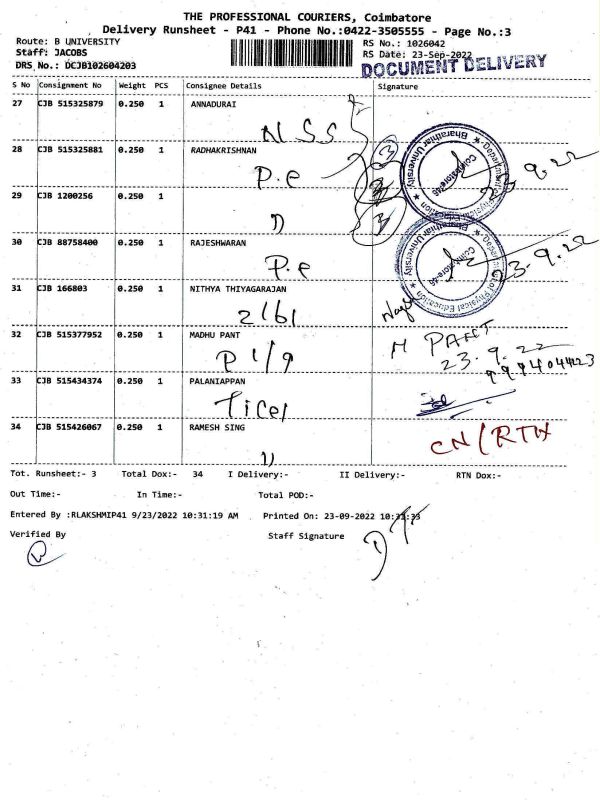 THE PROFESSIONAL COURIERS, Coimbatore
Delivery Runsheet - P41 - Phone No.:0422-3505555 - Page No.:3
Route: B UNIVERSITY
RS No.: 1026042
Staff: JACOBS
RS Date: 23-Sep-2022
DRS No.: DCJB102604203
DOCUMENT DELIVERY
S No Consignment No Weight PCS Consignee Details Signature
27 CJB 515325879 0.250 1 ANNADURAI
N S S
28 CJB 515325881 0.250 1 RADHAKRISHNAN
P.e
3
23.9.22
29 CJB 1200256 0.250 1
3
Bharathiar University
Coimbatore-46
30 CJB 88758400 0.250 1 RAJESHWARAN
P.e
23.9.22
Bharathiar University
Coimbatore-46
of Physical Education
31 CJB 166803 0.250 1 NITHYA THIYAGARAJAN
32 CJB 515377952 0.250 1 MADHU PANT
P 1/9
M PANT
23.9.22
33 CJB 515434374 0.250 1 PALANIAPPAN
34 CJB 515426067 0.250 1 RAMESH SING
CN/RTN
Tot. Runsheet:- 3 Total Dox:- 34 I Delivery:- II Delivery:- RTN Dox:-
Out Time:- In Time:- Total POD:-
Entered By :RLAKSHMIP41 9/23/2022 10:31:19 AM Printed On: 23-09-2022 10:33:33
Verified By Staff Signature